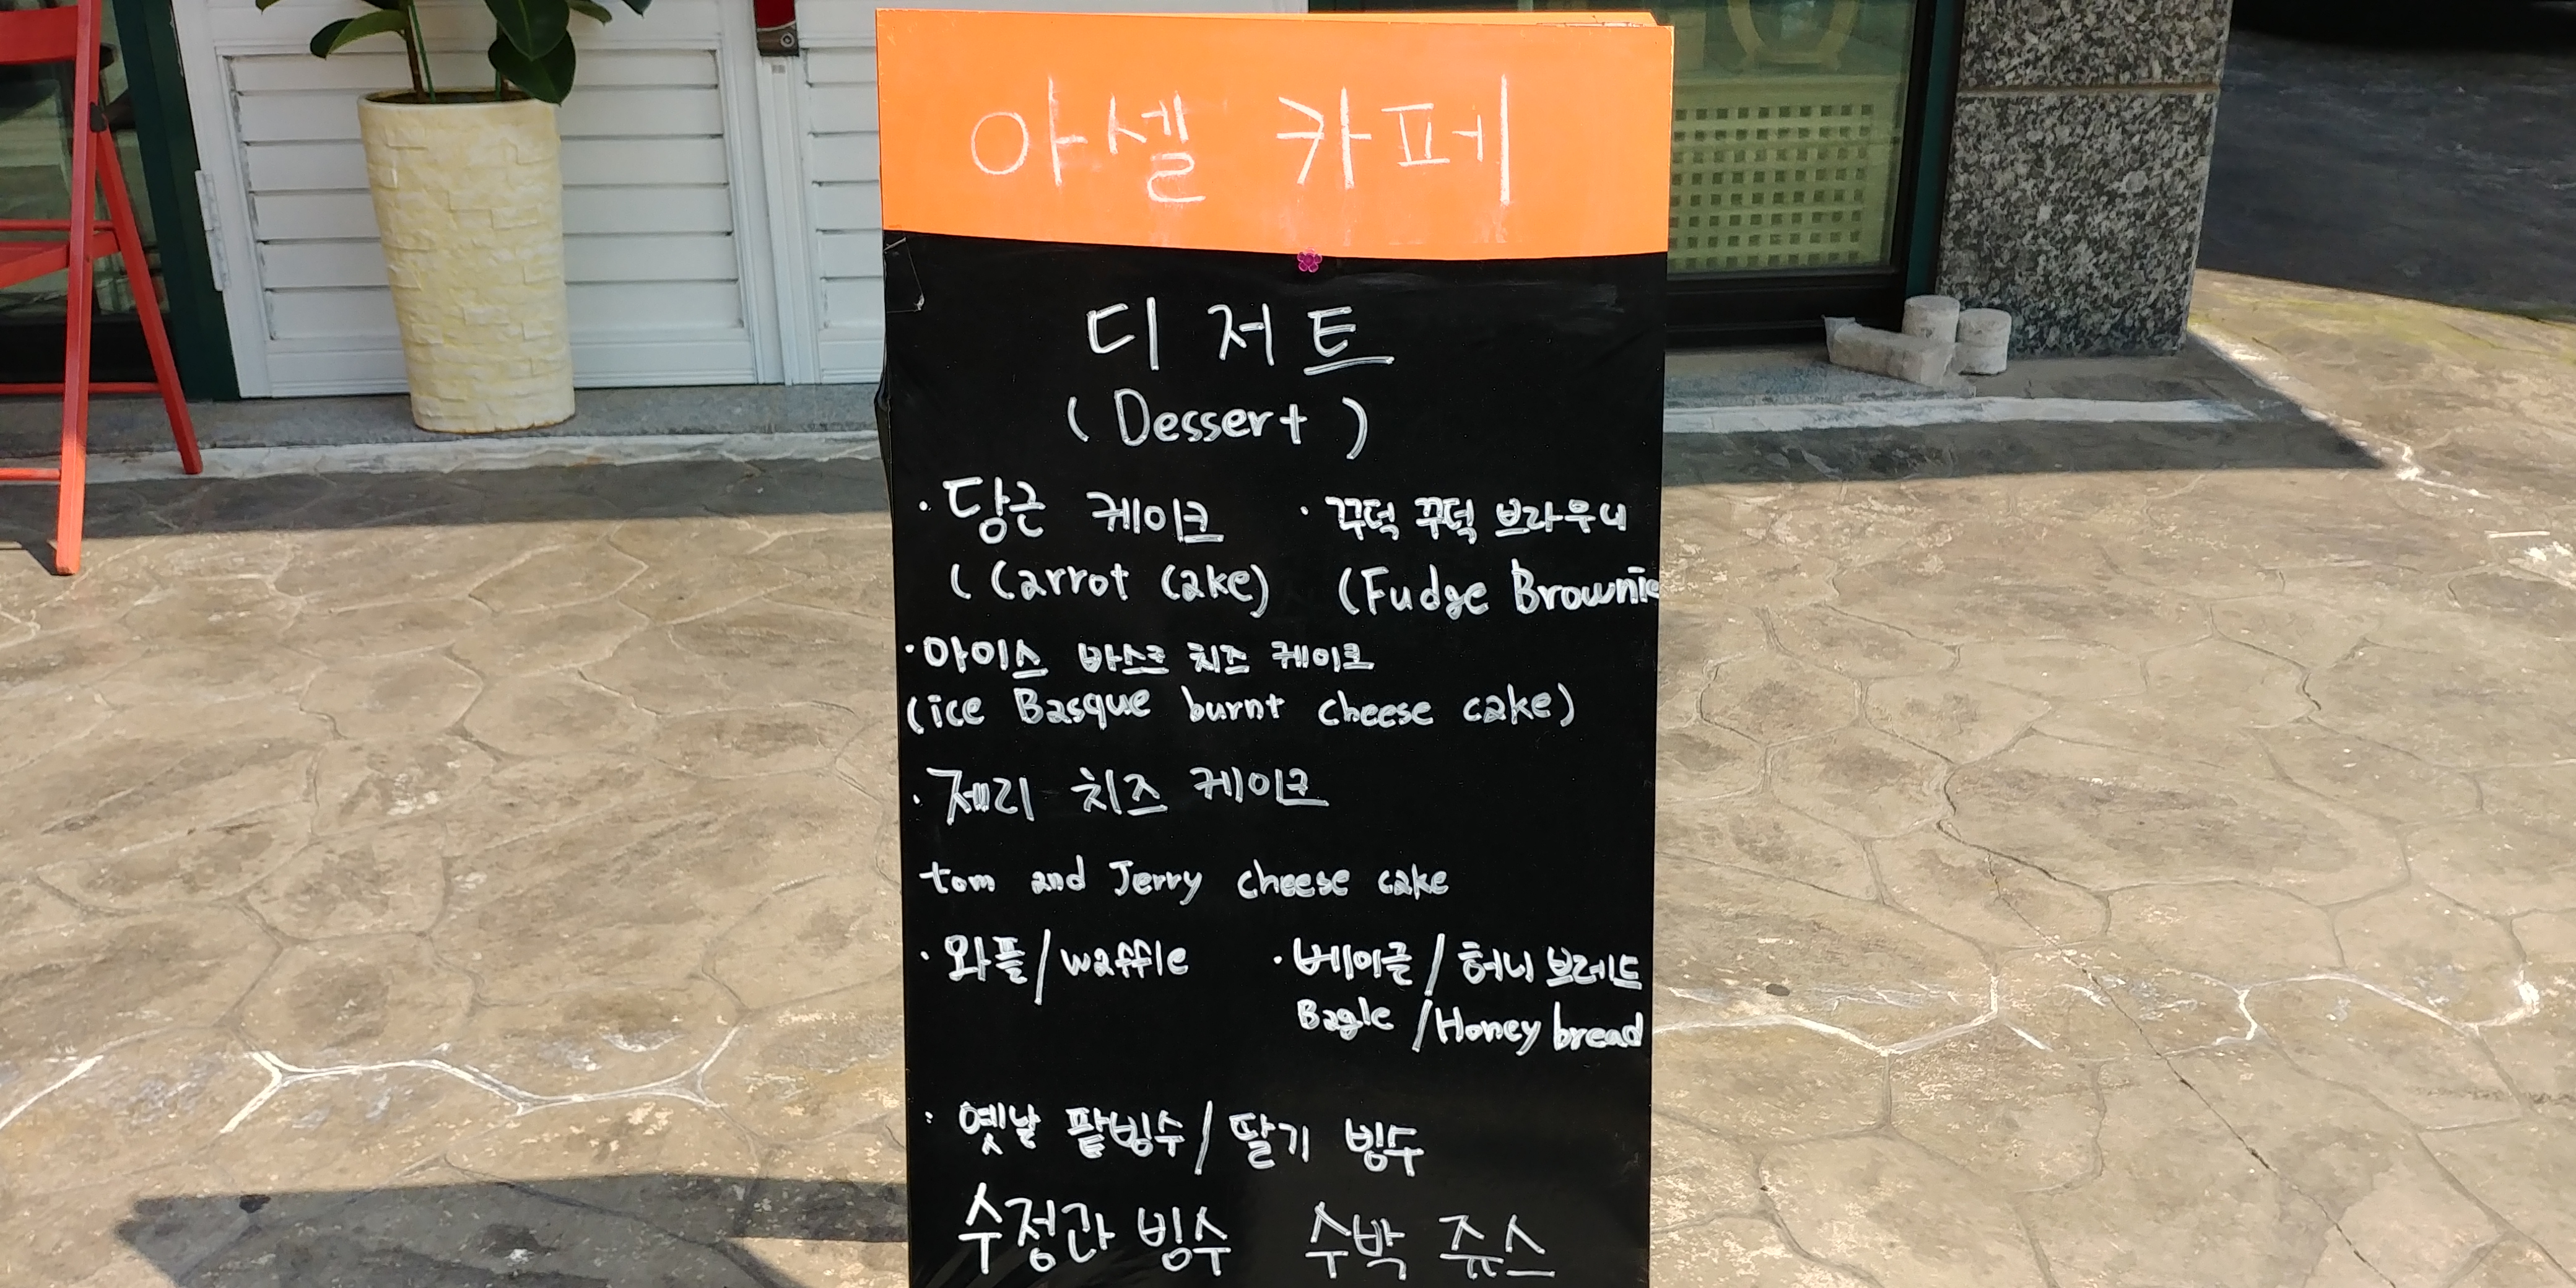 아셀 카페
디저트
(Dessert)
· 당근 케이크 · 꾸덕 꾸덕 브라우니
(Carrot Cake) (Fudge Brownie
· 아이스 바스크 치즈 케이크
(ice Basque burnt cheese cake)
· 제리 치즈 케이크
tom and Jerry cheese cake
· 와플/waffle · 베이글/허니 브레드
Bagle /Honey bread
· 옛날 팥빙수/딸기 빙수
수정과 빙수 수박 쥬스